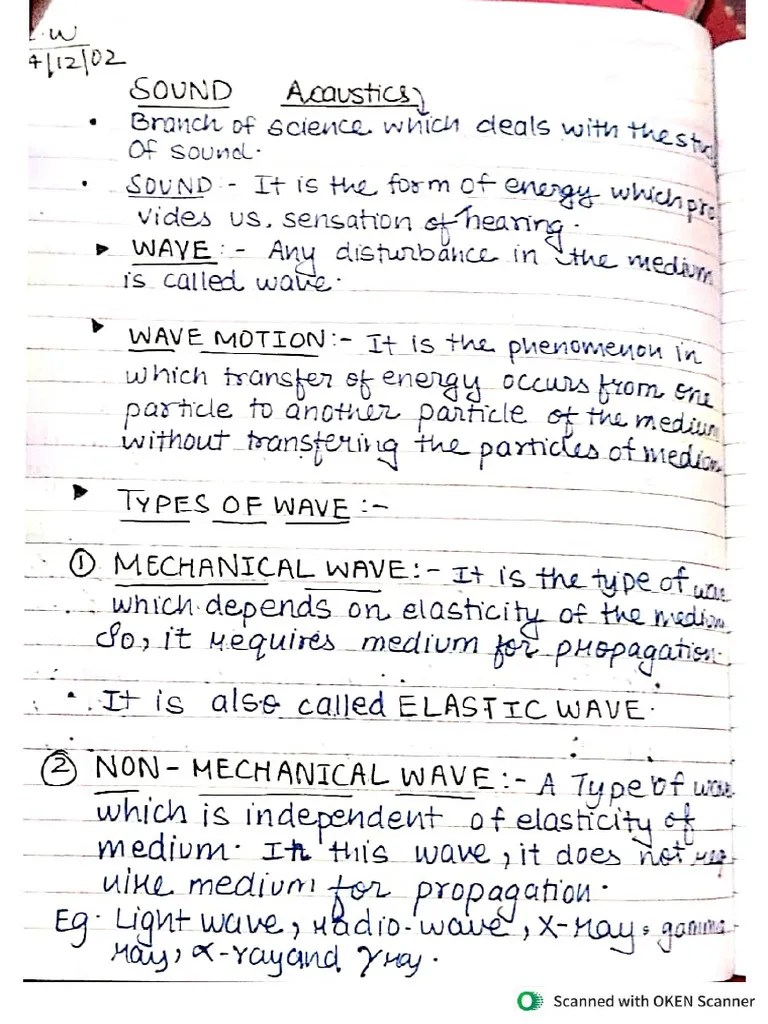 C.W
4/12/02
SOUND Acaustics
• Branch of science which deals with the stu
Of sound.
• SOUND - It is the form of energy which pro
vides us, sensation of hearing.
▸ WAVE :- Any disturbance in the medium
is called wave.
▸ WAVE MOTION :- It is the phenomenon in
which transfer of energy occurs from one
particle to another particle of the medium
without transfering the particles of medium
▸ TYPES OF WAVE :-
① MECHANICAL WAVE :- It is the type of wave
which depends on elasticity of the medium
So, it requires medium for propagation.
• It is also called ELASTIC WAVE.
② NON-MECHANICAL WAVE :- A Type of wave
which is independent of elasticity of
medium. In this wave, it does not req
uire medium for propagation.
Eg. Light wave, radio-wave, X-ray, gamma-
ray, α-ray and γ ray.
Scanned with OKEN Scanner